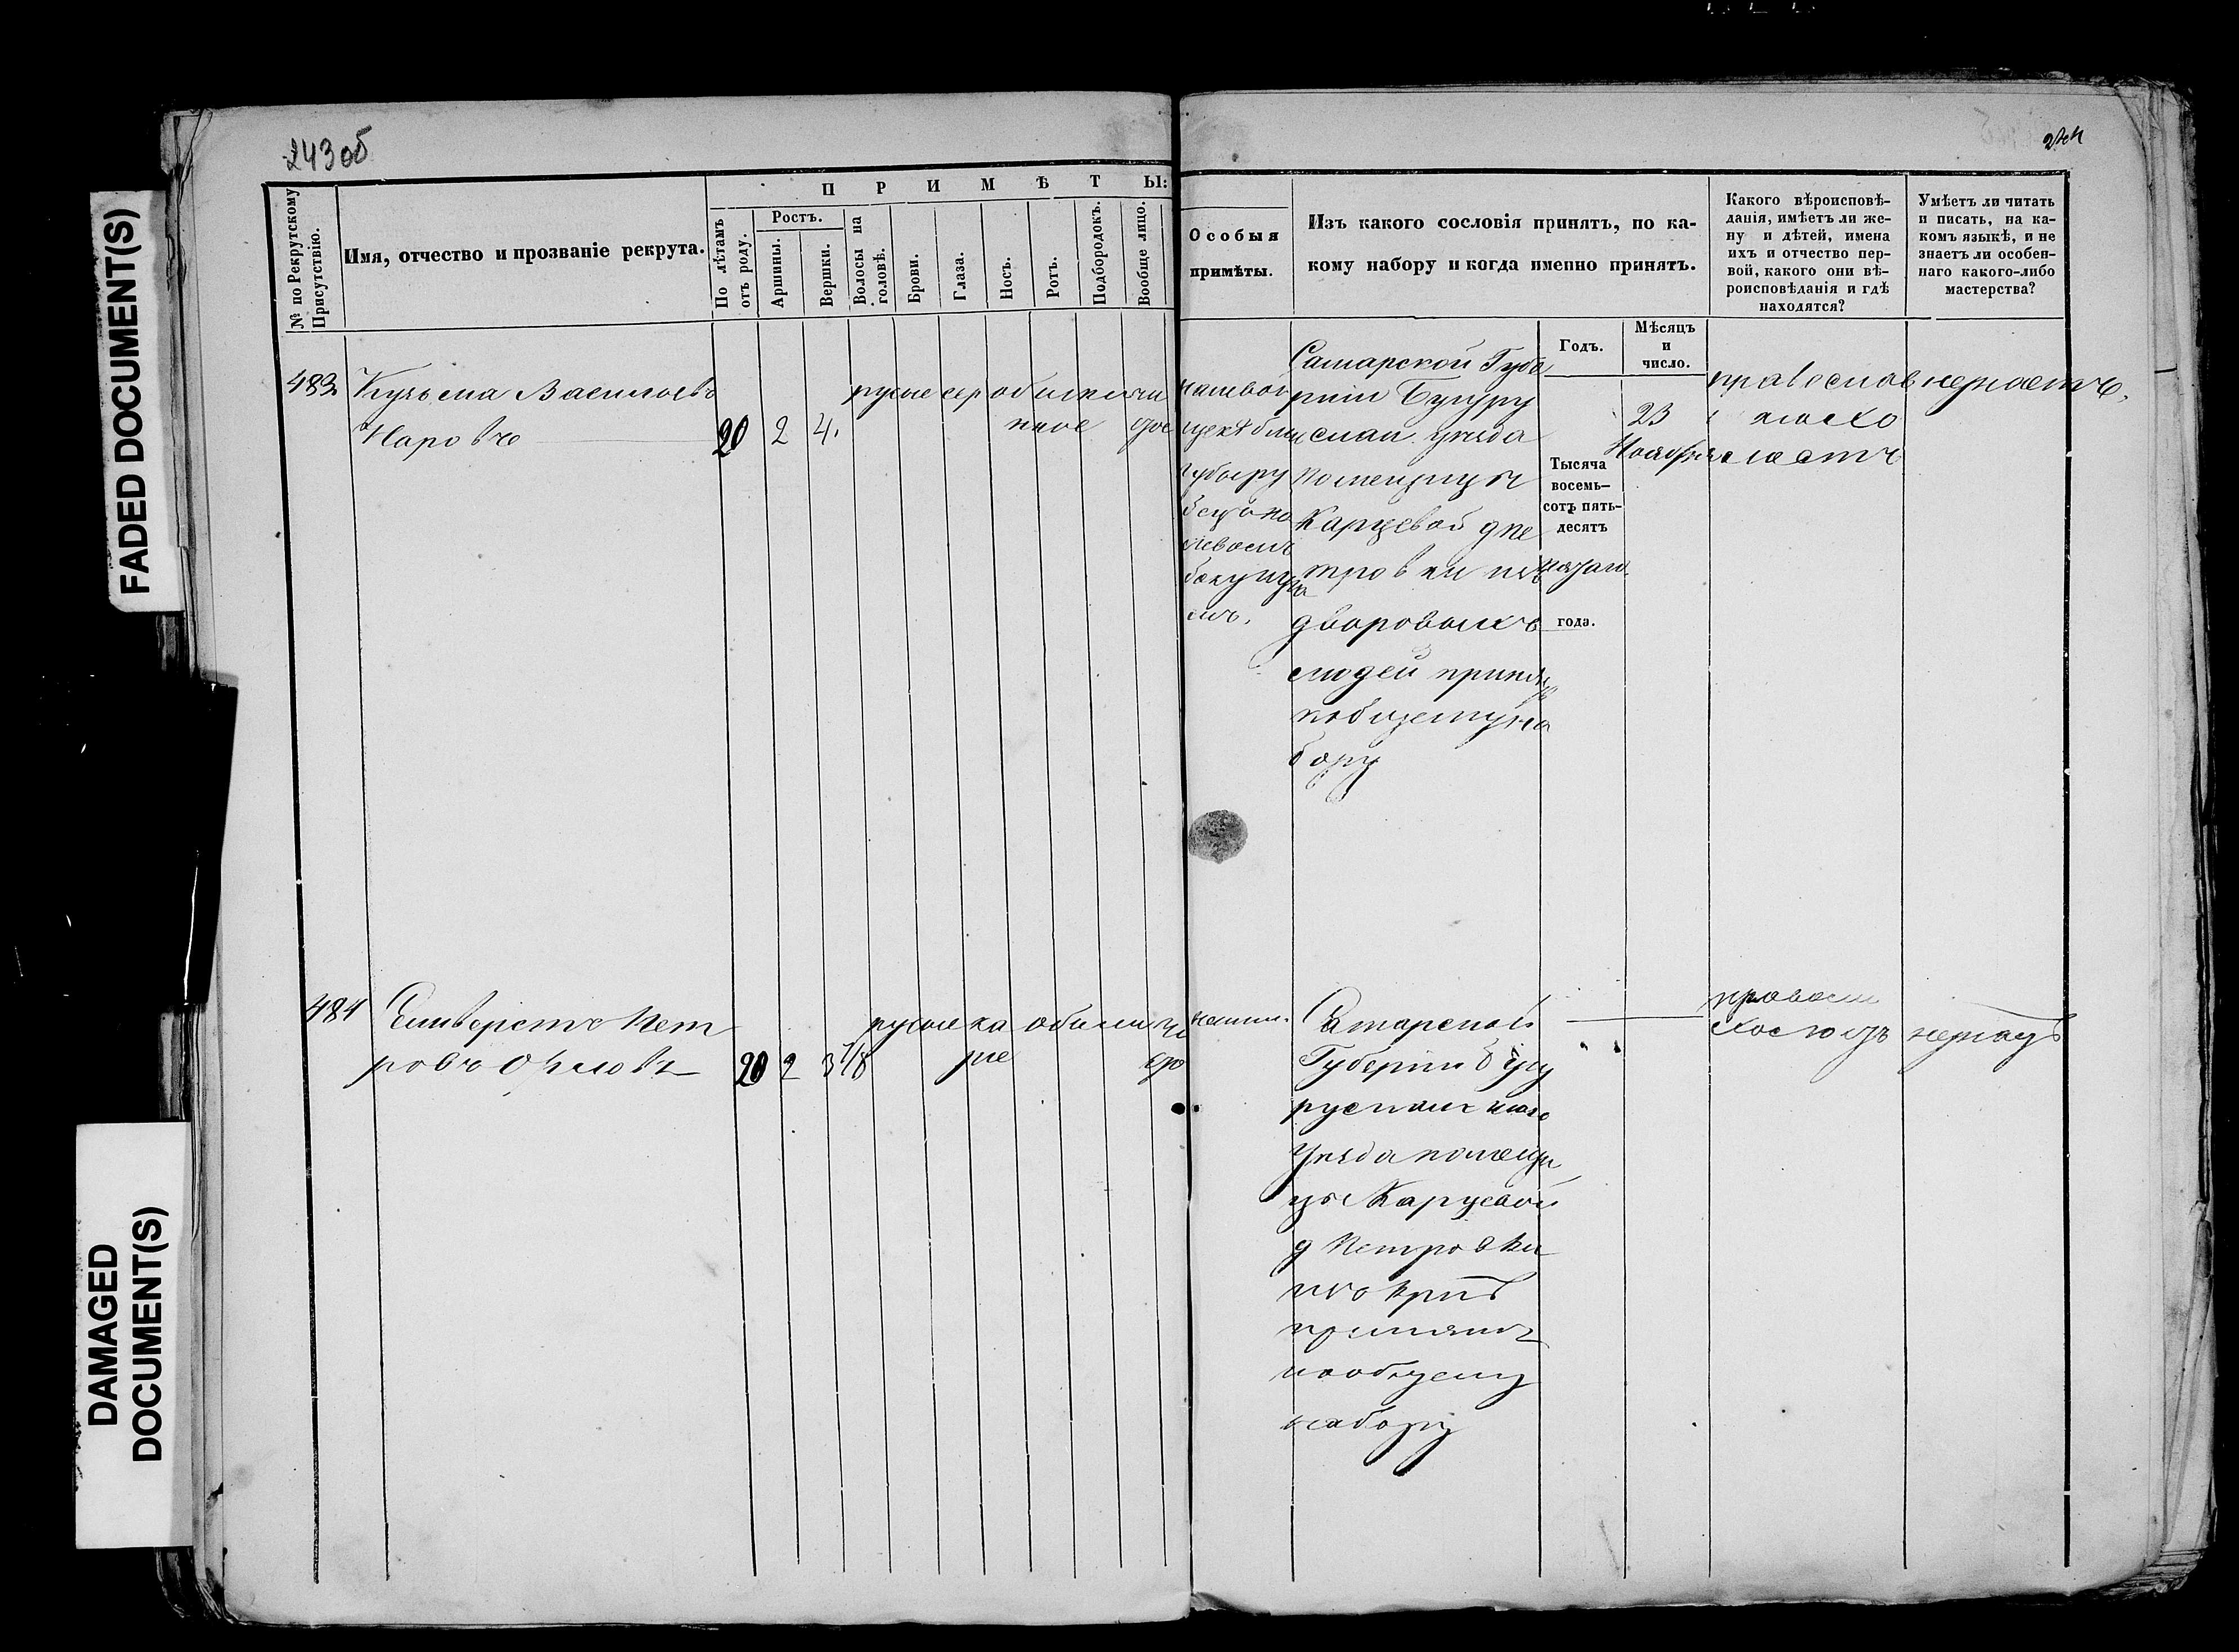 243об
FADED DOCUMENT(S)
DAMAGED
DOCUMENT(S)
№ по Рекрутскому
Присутствію.
Имя, отчество и прозваніе рекрута.
П Р И М Ѣ Т Ы:
По лѣтамъ
отъ роду.
Ростъ.
Аршины.
Вершки.
Волосы на
головѣ.
Брови.
Глаза.
Носъ.
Ротъ.
Подбородокъ.
Вообще лицо.
Особыя
примѣты.
Изъ какого сословія принятъ, по ка-
кому набору и когда именно принятъ.
Какого вѣроисповѣ-
данія, имѣетъ ли же-
ну и дѣтей, имена
ихъ и отчество пер-
вой, какого они вѣ-
роисповѣданія и гдѣ
находятся?
Умѣетъ ли читать
и писать, на ка-
комъ языкѣ, и не
знаетъ ли особен-
наго какого-либо
мастерства?
Годъ.
Мѣсяцъ
и
число.
483
Кузьма Васильевъ
20 2 4.
русые сер обыкно чи
нное
щекѣ близ
губы ру
Самарской Губе
рніи Бугуру
слан. уезда
помещицы
Карцевой д Пе
тровки изъ
дворовыхъ
людей принятъ
собщему на
бору
Тысяча
восемь-
сотъ пять-
десятъ
года.
23
Ноября
православ
холостъ
незнаетъ.
484
Селиверстъ Пет
ровъ Орловъ
20 2 3 1/8
русые ка обыкн чи
рие
неим.
Самарской
Губерніи Бугу
русланскаго
Уезда помещи
цы Карцевой
д Петровки
принятъ
пообщему
набору
правосл
холост
незнаетъ